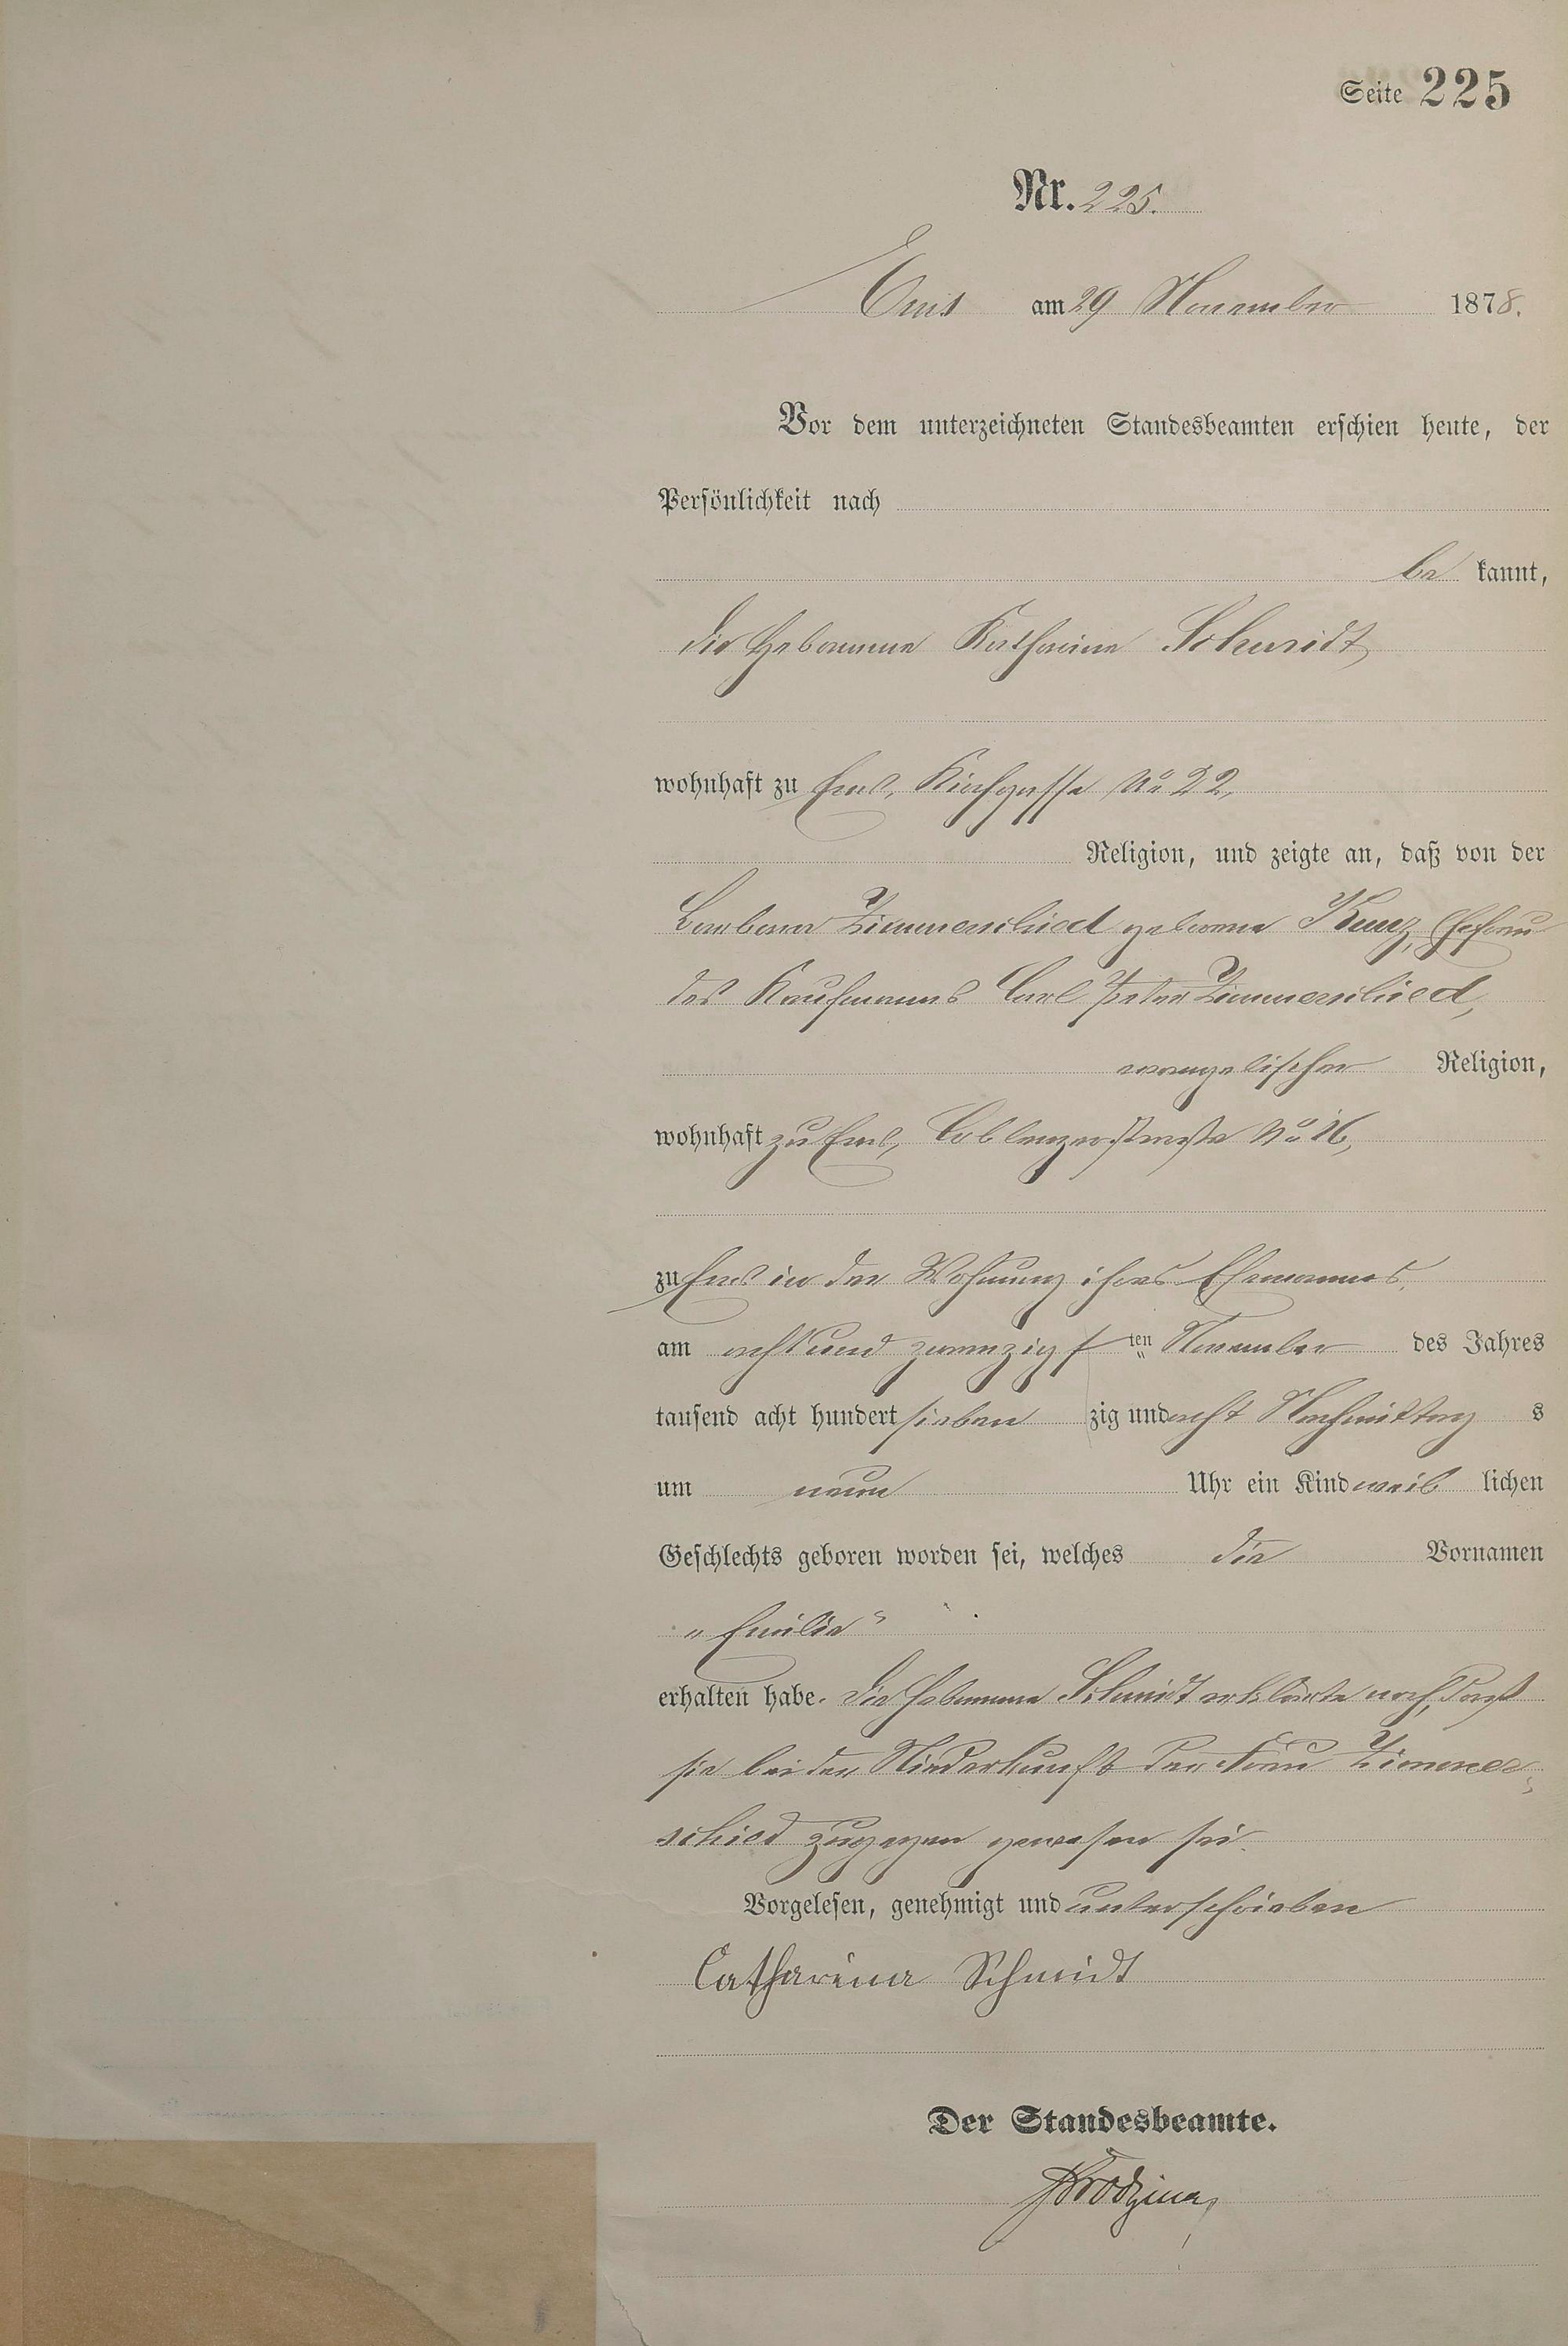 Seite 225
Nr. 225.
Ems am 29 November 1878.
Vor dem unterzeichneten Standesbeamten erschien heute, der
Persönlichkeit nach
be kannt,
die Hebamme Katharina Schmidt,
wohnhaft zu Ems, Kirchgasse No 22,
Religion, und zeigte an, daß von der
Barbara Zimmerschied geborne Kunz, Ehefrau
des Kaufmanns Carl Peter Zimmerschied,
evangelischer Religion,
wohnhaft zu Ems, Coblenzerstraße No 16,
zu Ems in der Wohnung ihres Ehemannes,
am acht und zwanzigs ten November des Jahres
tausend acht hundert sieben zig und acht Nachmittag s
um neun Uhr ein Kind weib lichen
Geschlechts geboren worden sei, welches die Vornamen
„Emilie“
erhalten habe. Die Hebamme Schmidt erklärte noch, daß
sie bei der Niederkunft der Frau Zimmer-
schied zugegen gewesen sei.
Vorgelesen, genehmigt und unterschrieben
Catharina Schmidt
Der Standesbeamte.